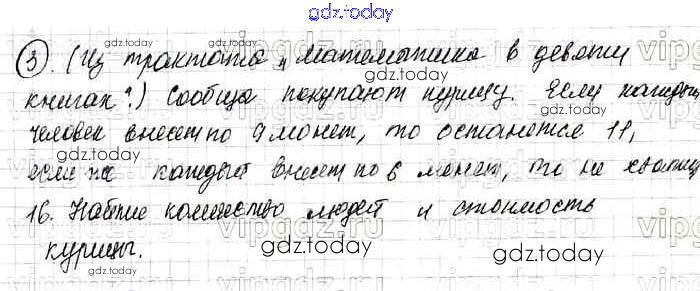 gdz.today
③. (Из трактата „Математика в девяти
книгах".) Сообща покупают курицу. Если каждый
человек внесет по 9 монет, то останется 11,
если же каждый внесет по 6 монет, то не хватит
16. Найти количество людей и стоимость
курицы.
gdz.today